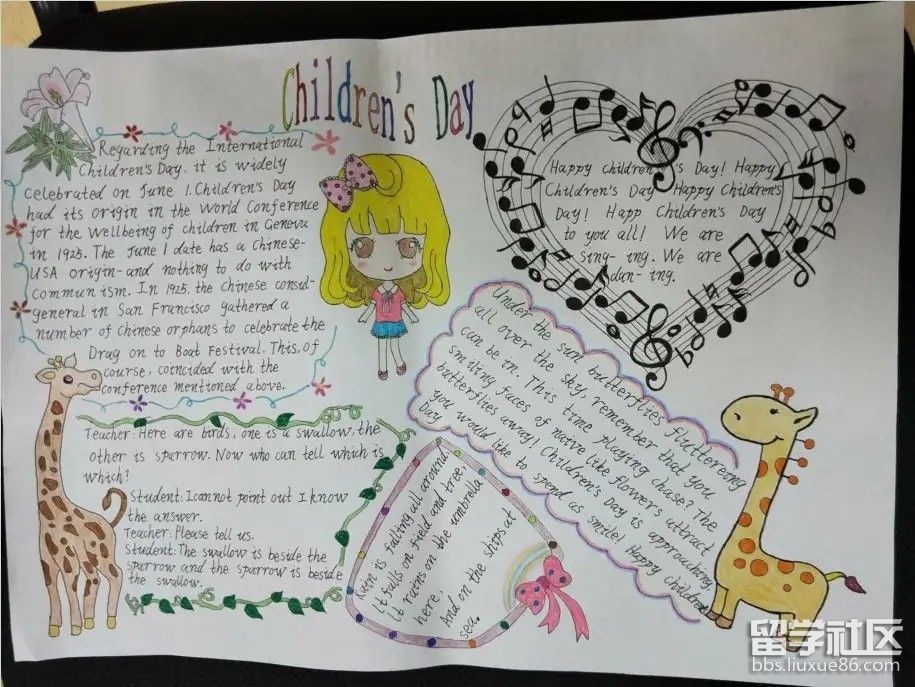 Children's Day
Regarding the International
Children's Day, it is widely
celebrated on June 1. Children's Day
had its origin in the World Conference
for the Wellbeing of children in Geneva
in 1925. The June 1 date has a Chinese-
USA origin- and nothing to do with
commun ism. In 1925, the Chinese consid-
general in San Francisco gathered a
number of Chinese orphans to celebrate the
Drag on to Boat Festival. This, of
course, coincided with the
conference mentioned above.
Happy children 's Day! Happy
Children's Day Happy Children's
Day! Happ Children's Day
to you all! We are
sing- ing. We are
dan- ing.
Under the sun butterflies fluttereing
all over the sky, remember that you
can be in. This time playing chase? The
smiling faces of naive like flowers attract
butterflies away! Children's Day is approaching,
you would like to spend as smile! Happy Children
Day.
Teacher: Here are birds, one is a swallow, the
other is sparrow. Now who can tell which is
which?
Student: I cannot point out I know
the answer.
Teacher: Please tell us.
Student: The swallow is beside the
sparrow and the sparrow is beside
the swallow.
Rain is falling all around,
It falls on field and tree,
it rains on the umbrella
here,
And on the ships at
sea.
留学社区
bbs.liuxue86.com